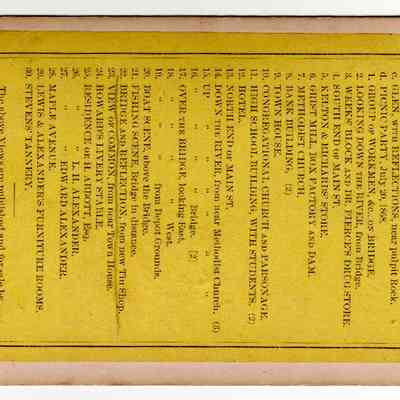 c. GLEN, WITH REFLECTIONS, near pulpit Rock.
d. PICNIC PARTY, July 20, 1868.
1. GROUP OF WORKMEN &c. ON BRIDGE.
2. LOOKING DOWN THE RIVER, from Bridge.
3. WEEK'S BLOCK AND DR. PIERCE'S DRUG STORE.
4. SOUTH END OF MAIN ST.
5. KELTON & EDWARDS' STORE.
6. GRIST MILL, BOX FACTORY AND DAM.
7. METHODIST CHURCH.
8. BANK BUILDING, (2)
9. TOWN HOUSE.
10. CONGREGATIONAL CHURCH AND PARSONAGE.
11. HIGH SCHOOL BUILDING, WITH STUDENTS, (2)
12. HOTEL.
13. NORTH END OF MAIN ST.
14. DOWN THE RIVER, from near Methodist Church, (3)
15. UP " " " " "
16. " " " Bridge. (2)
17. OVER THE BRIDGE, looking East.
18. " " " West.
19. " " " from Depot Grounds.
20. BOAT SCENE, above the Bridge.
21. FISHING SCENE, Bridge in distance.
22. BRIDGE AND REFLECTION, from new Tin Shop.
23. VIEW OF COMMON, from near Town House.
24. HOWARD'S LIVERY STABLE.
25. RESIDENCE of IRA ABBOTT, Esq.
26. " " L. B. ALEXANDER.
27. " " EDWARD ALEXANDER.
28. MAPLE AVENUE.
29. LEWIS & ALEXANDER'S FURNITURE ROOMS.
30. STEVENS' TANNERY.
The above Views are published and for sale by